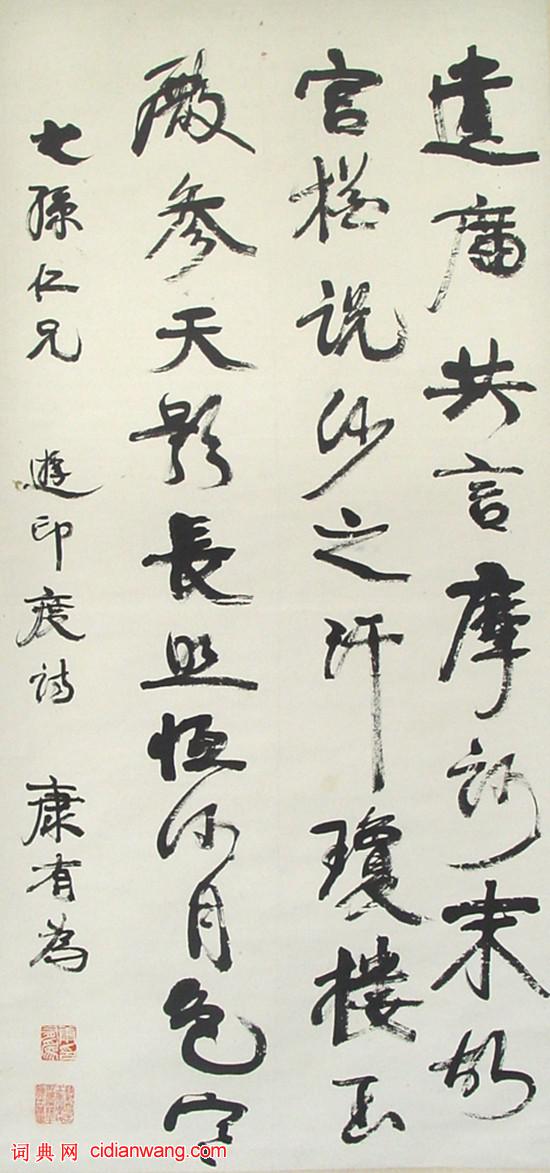 遺庿共言摩訶末故
宮說沙之汗瓊樓玉
殿參天影長照恆河月色寒
七孫仁兄 遊印度詩 康有為
词典网 cidianwang.com